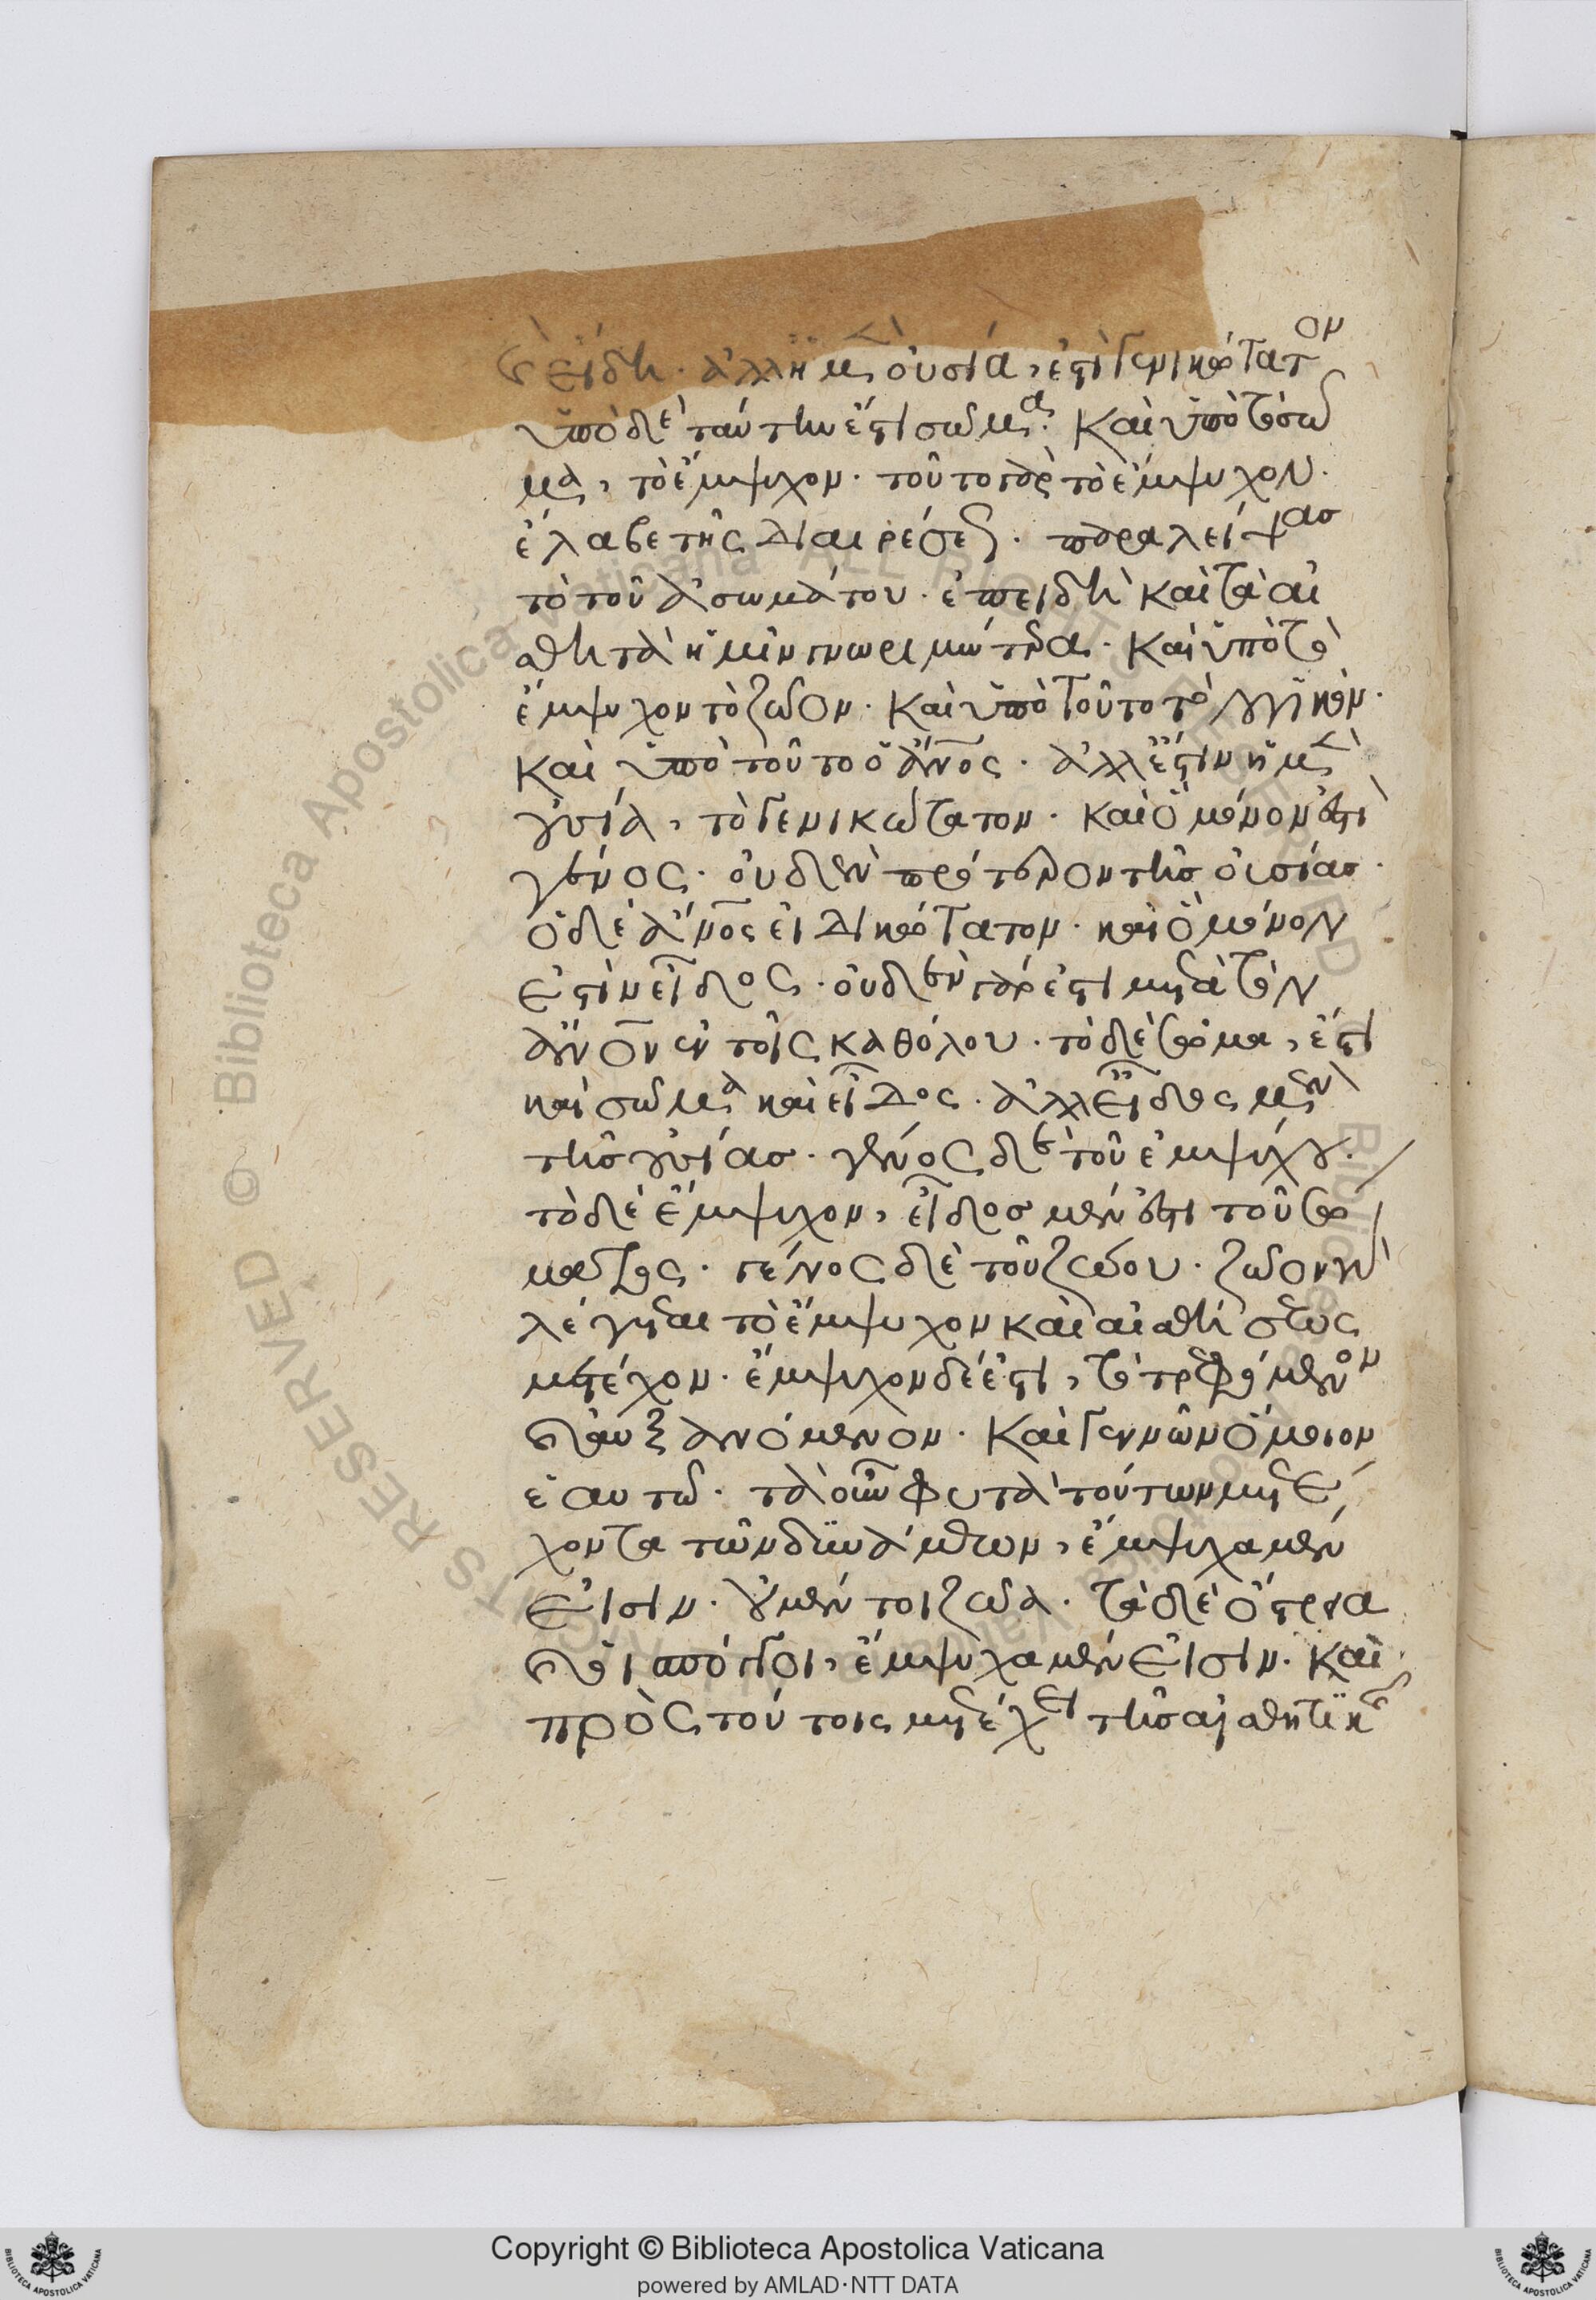 εἴδη. ἀλλ' ἡ μὲν οὐσία, ἐστὶ γενικώτατον
ὑπὸ δὲ ταύτην ἐστὶ σῶμα. καὶ ὑπὸ τὸ σῶ
μα, τὸ ἔμψυχον. τοῦτο γὰρ τὸ ἔμψυχον.
ἔλαβε τῆς διαιρέσεως. παραλείψας
τὸ τοῦ ἀσωμάτου. ἐπειδὴ καὶ τὰ αἰ
σθητὰ ἡμῖν γνωριμώτερα. καὶ ὑπὸ τὸ
ἔμψυχον τὸ ζῶον. καὶ ὑπὸ τοῦτο τὸ λογικόν.
καὶ ὑπὸ τοῦτο ὁ ἄνος. ἀλλ' ἔστιν ἡ μὲν
οὐσία, τὸ γενικώτατον. καὶ ὃ μόνον ἐστὶ
γένος. οὐδὲν πρότερον τῆς οὐσίας.
ὁ δὲ ἄνος εἰδικότατον. καὶ ὃ μόνον
ἐστὶν εἶδος. οὐδὲν γάρ ἐστι μετὰ τὸν
ἄνον ἐν τοῖς καθόλου. τὸ δὲ σῶμα, ἔστι
καὶ σῶμα καὶ εἶδος. ἀλλ' εἶδος μὲν
τῆς οὐσίας. γένος δὲ τοῦ ἐμψύχου.
τὸ δὲ ἔμψυχον, εἶδος μέν ἐστι τοῦ σώ
ματος. γένος δὲ τοῦ ζώου. ζῶον γὰρ
λέγεται τὸ ἔμψυχον καὶ αἰσθήσεως
μετέχον. ἔμψυχον δέ ἐστι, τὸ τρεφόμενον
καὶ αὐξανόμενον. καὶ γεννῶν ὅμοιον
ἑαυτῶ. τὰ οὖν φυτὰ τούτων μετέ
χοντα τῶν δυνάμεων, ἔμψυχα μέν
εἰσιν. οὐ μέν τοι ζῶα. τὰ δὲ ὄστρεα
καὶ οἱ σπόγγοι, ἔμψυχα μέν εἰσιν. καὶ
πρὸς τούτοις μετέχει τῆς αἰσθητικῆς